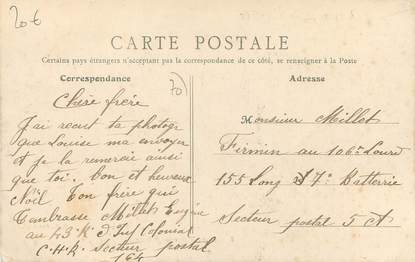 20€
CARTE POSTALE
Certains pays étrangers n'acceptant pas la correspondance de ce côté, se renseigner à la Poste
Correspondance
70
Chère frère
J'ai recut ta photogr
que Louise ma envoyer
et je la remerai ainsi
que toi. bon et heureux
Noël Ton frère qui
t'embrasse Millet Eugène
au 43 R d'Inf Colonial
C.H.R. Secteur postal
164
Adresse
Monsieur Millet
Firmin au 106e Lourd
155 Long 7e Batterrie
Secteur postal 5 A